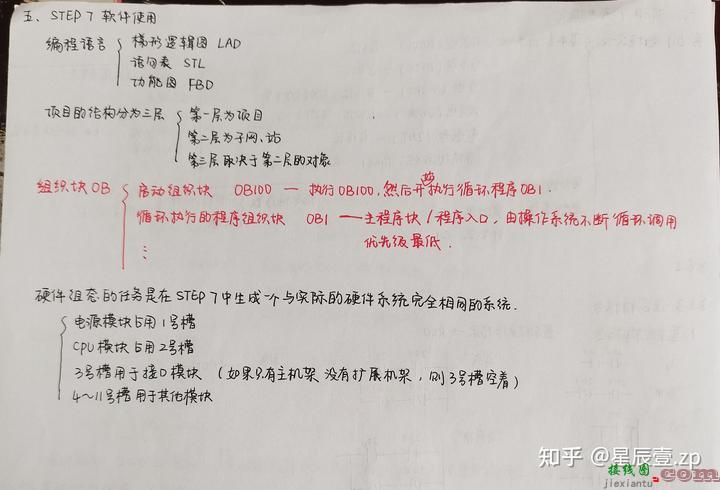 五、STEP 7 软件使用
编程语言 { 梯形逻辑图 LAD
语句表 STL
功能图 FBD
项目的结构分为三层 { 第一层为项目
第二层为子网、站
第三层取决于第二层的对象
组织块OB { 启动组织块 OB100 — 执行OB100,然后开始执行循环程序OB1.
循环执行的程序组织块 OB1 — 主程序块/程序入口,由操作系统不断循环调用
优先级最低.
⋮
硬件组态的任务是在STEP 7中生成一个与实际的硬件系统完全相同的系统.
{ 电源模块占用1号槽
CPU模块占用2号槽
3号槽用于接口模块 (如果只有主机架 没有扩展机架,则3号槽空着)
4~11号槽用于其他模块
知乎 @星辰壹.zp
接线图
jiexiantu
com